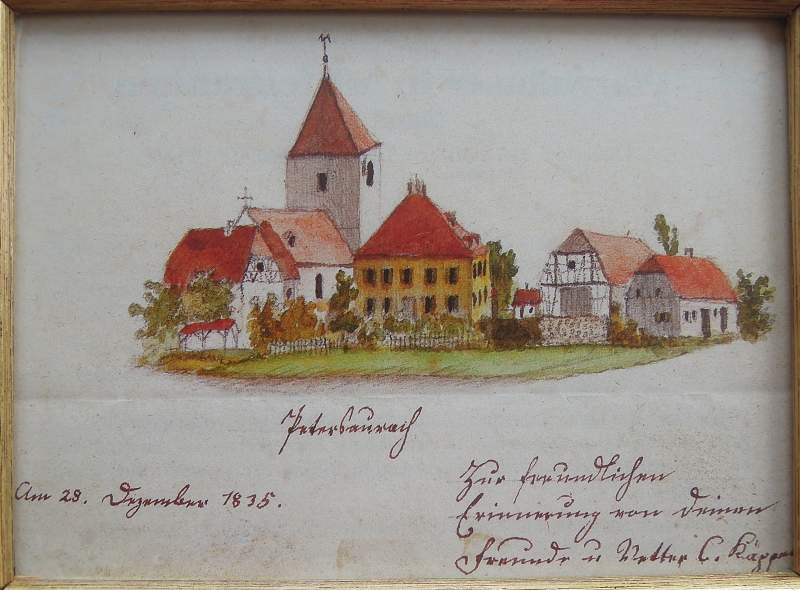 Petersaurach
Am 28. Dezember 1835.
Zur freundlichen
Erinnerung von deinem
Freunde u Vetter C.